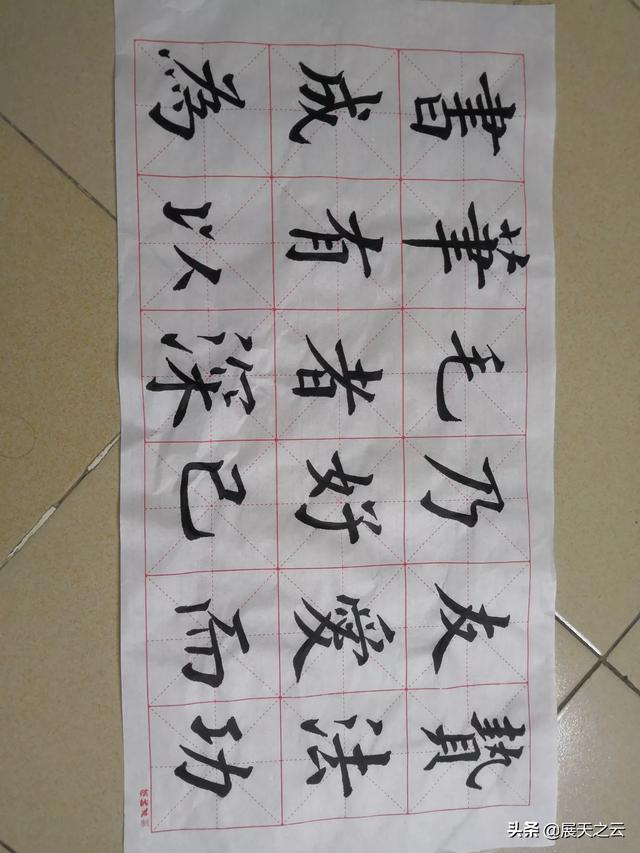 贄友乃毛筆書
法愛好者有成
功而己深以為
头条 @展天之云